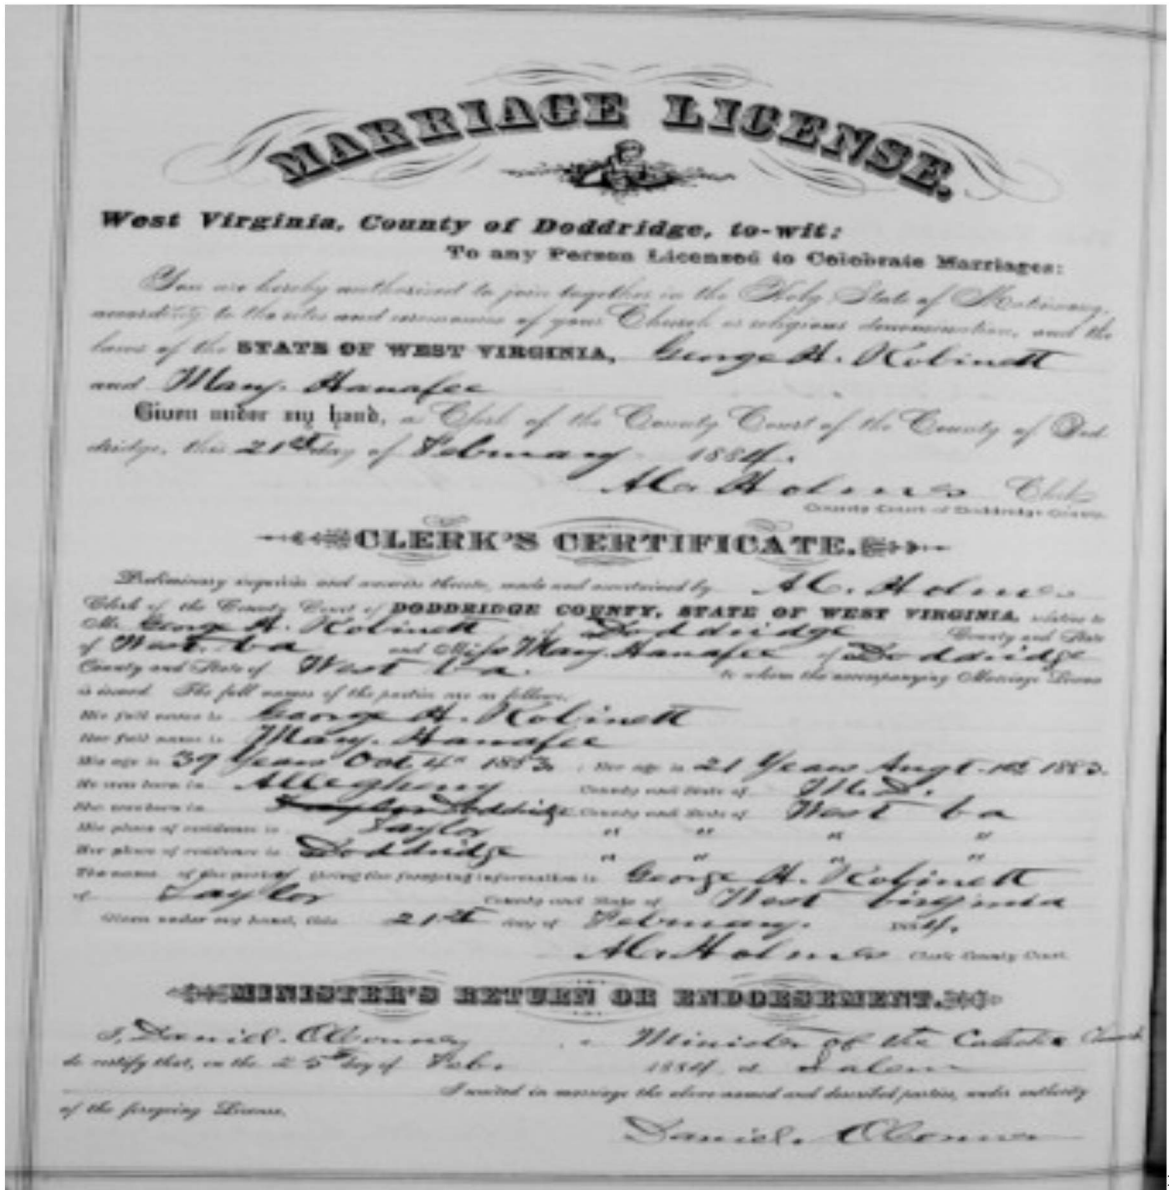 MARRIAGE LICENSE.
West Virginia, County of Doddridge, to-wit:
To any Person Licensed to Celebrate Marriages:
You are hereby authorized to join together in the Holy State of Matrimony,
according to the rites and ceremonies of your Church or religious denomination, and the
laws of the STATE OF WEST VIRGINIA, George H. Robinett
and Mary. Hanafee
Given under my hand, a Clerk of the County Court of the County of Dod-
dridge, this 21st day of February 1884.
Holmes Clerk
County Court of Doddridge County.
CLERK'S CERTIFICATE.
Preliminary inquiries and answers thereto, made and ascertained by Holmes
Clerk of the County Court of DODDRIDGE COUNTY, STATE OF WEST VIRGINIA, relative to
Mr. George H. Robinett of Doddridge County and State
of West Va and Miss Mary Hanafee of Doddridge
County and State of West Va. to whom the accompanying Marriage License
is issued. The full names of the parties are as follows:
His full name is George H. Robinett
Her full name is Mary. Hanafee
His age is 39 Years Oct 4th 1883. Her age is 21 Years Augt. 1883.
He was born in Allegheny County and State of M.D.
She was born in Taylor Doddridge County and State of West Va
His place of residence is Taylor " " " "
Her place of residence is Doddridge " " " "
The name of the party giving the foregoing information is George H. Robinett
of Taylor County and State of West Virginia
Given under my hand, this 21st day of February. 1884.
Holmes Clerk County Court.
MINISTER'S RETURN OR ENDORSEMENT.
I, Daniel. OConner a Minister of the Catholic Church
do certify that, on the 25th day of Feb. 1884, at Salem
I united in marriage the above named and described parties, under authority
of the foregoing License.
Daniel. OConner